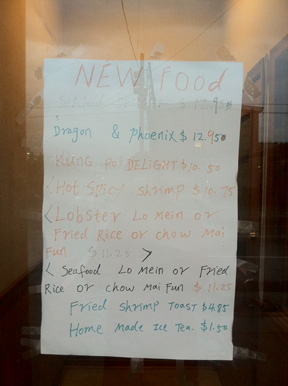 NEW FOOd
$ 12.95
Dragon & phoenix $ 12.950
KUNG PO DELIGHT $10.50
< Hot Spicy shrimp $10.75
< Lobster Lo mein or
Fried Rice or chow mai
Fun $11.25 >
< Seafood Lo mein or Fried
Rice or chow mai Fun $ 11.25
Fried shrimp Toast $4.85
Home made Ice Tea. $1.50